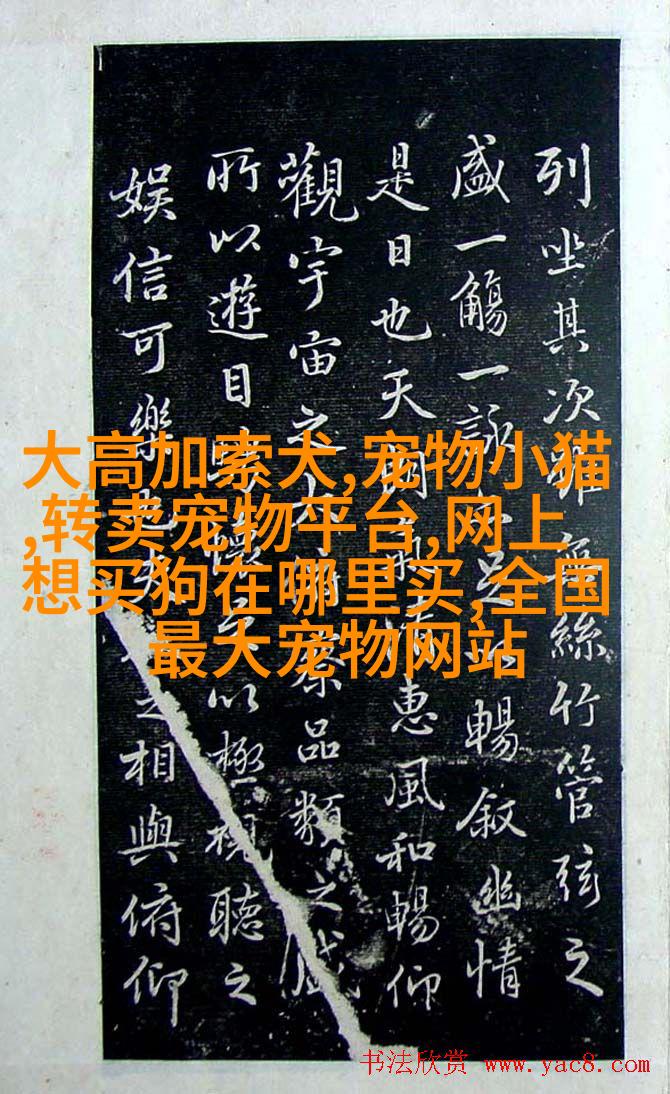 列坐其次雖無絲竹管弦之
盛一觴一詠亦足以暢叙幽情
是日也天朗氣清惠風和暢仰
觀宇宙之大俯察品類之盛
所以遊目騁懷足以極視聽之
娱信可樂也夫人之相與俯仰
大高加索犬,宠物小猫
,转卖宠物平台,网上
想买狗在哪里买,全国
最大宠物网站
书法欣赏 www.yac8.com